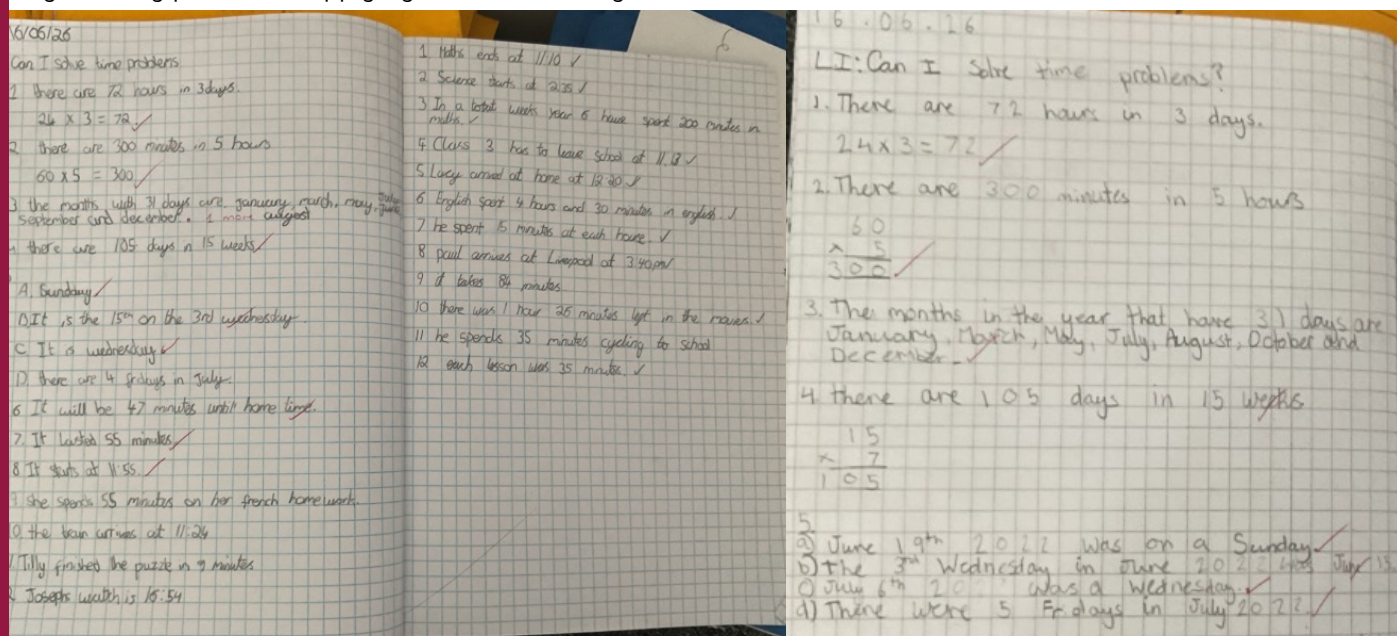 16/06/26
Can I solve time problems
1 there are 72 hours in 3 days.
24 x 3 = 72
2 there are 300 minutes in 5 hours
60 x 5 = 300
3 the months with 31 days are, january, march, may, July
september and december. 1 more august
there are 105 days in 15 weeks
A. Sunday
It is the 15th on the 3rd wednesday.
C It is wednesday
D. there are 4 fridays in July
6 It will be 47 minutes until home time.
7. It lasted 55 minutes
8 It starts at 11:55
She spends 55 minutes on her french homework.
0. the train arrives at 11:24
Tilly finished the puzzle in 9 minutes
Josephs watch is 15:54
1 Maths ends at 11:10
2 Science starts at 2:35
3 In a total week year 6 have spent 200 minutes in
maths.
4 Class 3 has to leave school at 11.13
5 Lucy arrived at home at 12:20
6 English spent 4 hours and 30 minutes in english.
7 he spent 15 minutes at each house.
8 paul arrives at Liverpool at 3:40pm
9 it takes 84 minutes
10 there was 1 hour 26 minutes left in the movies.
11 he spends 35 minutes cycling to school
12 each lesson was 35 minutes.
16.06.26
LI: Can I solve time problems?
1. There are 72 hours in 3 days.
24x3=72
2. There are 300 minutes in 5 hours
60
x 5
300
3. The months in the year that have 31 days are
January, March, May, July, August, October and
December.
4. there are 105 days in 15 weeks
15
x 7
105
5
a) June 19th 2022 was on a Sunday.
b) The 3rd Wednesday in June 2022 was June 15.
c) July 6th 20 was a wednesday.
d) There were 5 Fridays in July 2022.